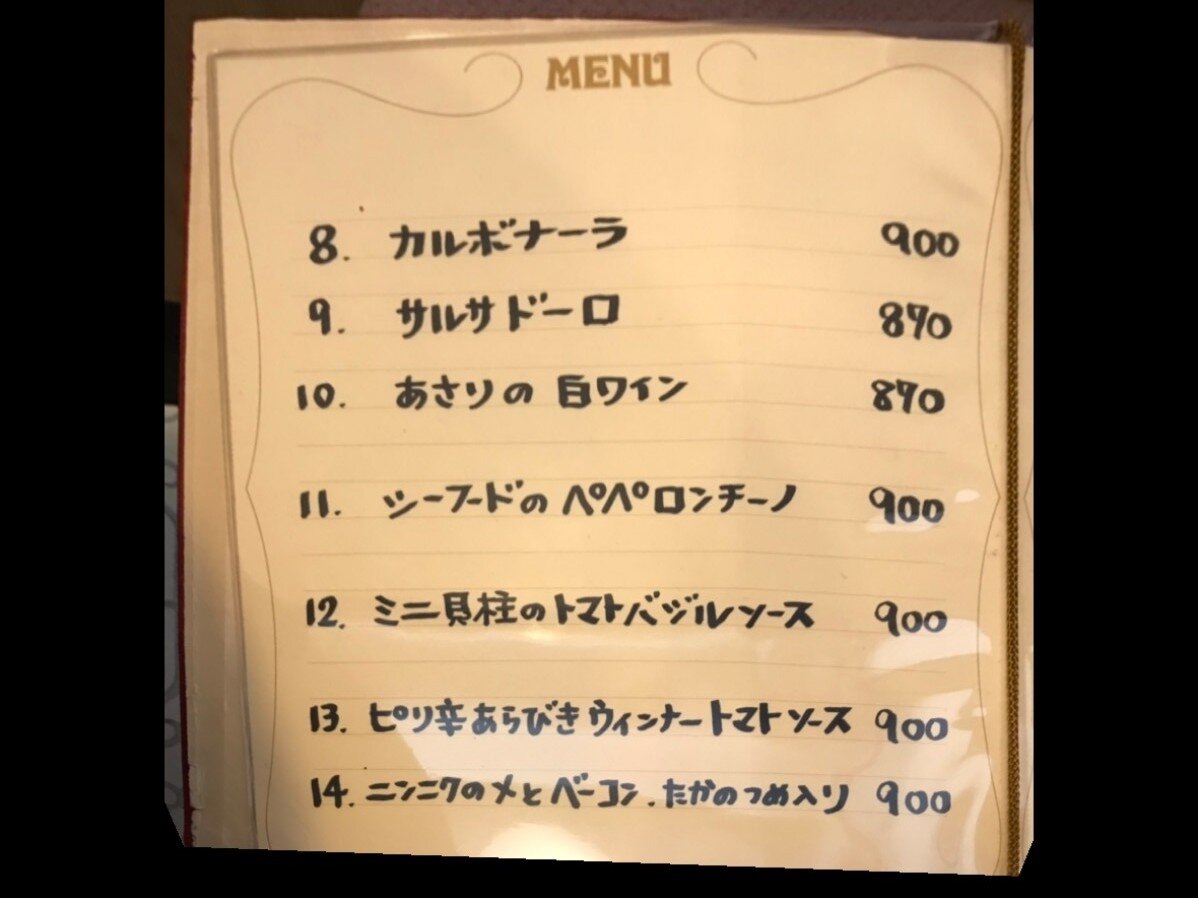 MENU
8. カルボナーラ 900
9. サルサドーロ 870
10. あさりの 白ワイン 870
11. シーフードの ペペロンチーノ 900
12. ミニ貝柱のトマトバジルソース 900
13. ピリ辛あらびきウィンナートマトソース 900
14. ニンニクのメとベーコン.たかのつめ入り 900